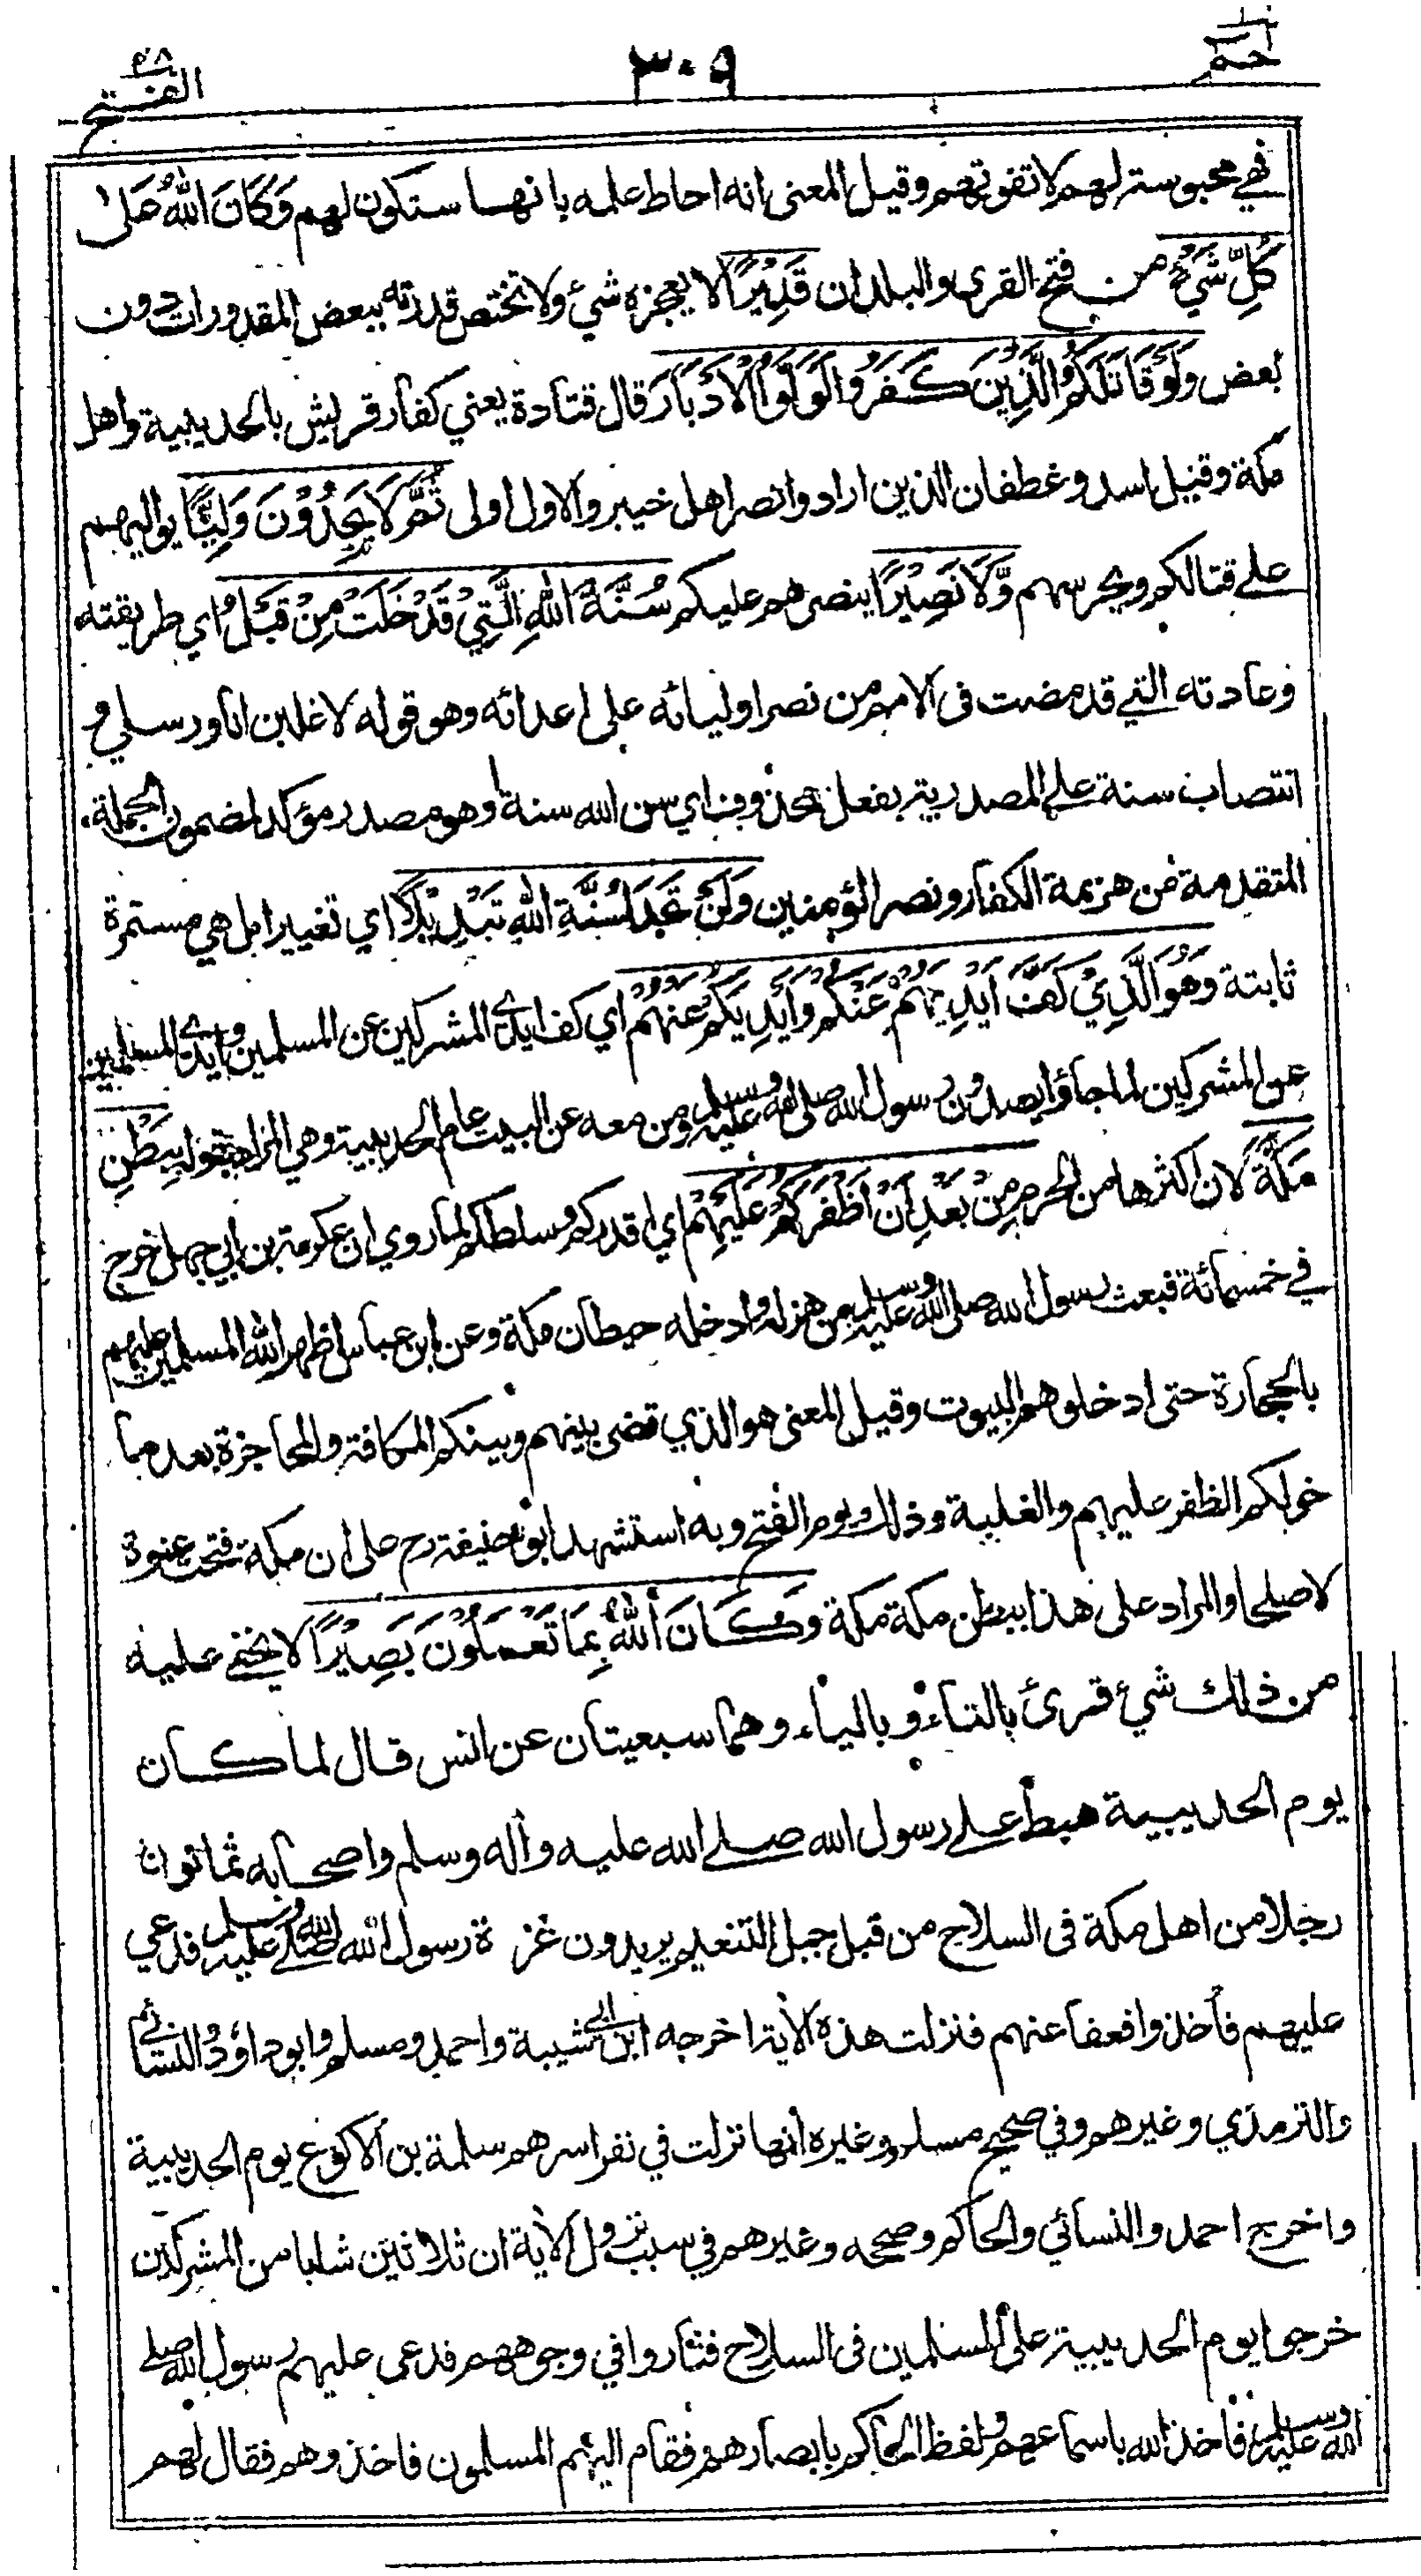 حم
٣٠٩
الفتح ٤٨
فهي محبوسة لهم لا تفوتهم وقيل المعنى انه احاط علمه بانها ستكون لهم وَكَانَ اللّٰهُ عَلٰى
كُلِّ شَيْءٍ من فتح القرى والبلدان قَدِيْرًا لا يعجزه شيء ولا تختص قدرته ببعض المقدورات دون
بعض وَلَوْ قَاتَلَكُمُ الَّذِيْنَ كَفَرُوْا لَوَلَّوُا الْاَدْبَارَ قال قتادة يعني كفار قريش بالحديبية واهل
مكة وقيل اسد وغطفان الذين ارادوا نصر اهل خيبر والاول اولى ثُمَّ لَا يَجِدُوْنَ وَلِيًّا يواليهم
على قتالكم ويحرسهم وَّلَا نَصِيْرًا ينصرهم عليكم سُنَّةَ اللّٰهِ الَّتِيْ قَدْ خَلَتْ مِنْ قَبْلُ اي طريقته
وعادته التي قد مضت فى الامم من نصر اوليائه على اعدائه وهو قوله لاغلبن انا ورسلي و
انتصاب سنة على المصدرية بفعل محذوف اي سن الله سنة او هو مصدر مؤكد لمضمون الجملة
المتقدمة من هزيمة الكفار ونصر المؤمنين وَلَنْ تَجِدَ لِسُنَّةِ اللّٰهِ تَبْدِيْلًا اي تغييرا بل هي مستمرة
ثابتة وَهُوَ الَّذِيْ كَفَّ اَيْدِيَهُمْ عَنْكُمْ وَاَيْدِيَكُمْ عَنْهُمْ اي كف ايدي المشركين عن المسلمين وايدي المسلمين
عن المشركين لما جاؤا يصدون رسول الله صلى الله عليه وسلم ومن معه عن البيت عام الحديبية وهي المراد بقوله بِبَطْنِ
مَكَّةَ لان اكثرها من الحرم مِنْ بَعْدِ اَنْ اَظْفَرَكُمْ عَلَيْهِمْ اي اقدركم وسلطكم لما روي ان عكرمة بن ابي جهل خرج
في خمسمائة فبعث رسول الله صلى الله عليه وسلم من هزمه وادخله حيطان مكة وعن ابن عباس اظهر الله المسلمين عليهم
بالحجارة حتى ادخلوهم البيوت وقيل المعنى هو الذي قضى بينهم وبينكم المكافة والمحاجزة بعد ما
خولكم الظفر عليهم والغلبة وذلك يوم الفتح وبه استشهد ابو حنيفة رح على ان مكة فتحت عنوة
لا صلحا والمراد على هذا ببطن مكة مكة وَكَانَ اللّٰهُ بِمَا تَعْمَلُوْنَ بَصِيْرًا لا يخفى عليه
من ذلك شيء قرئ بالتاء وبالياء وهما سبعيتان عن انس قال لما كان
يوم الحديبية هبط على رسول الله صلى الله عليه وآله وسلم واصحابه ثمانون
رجلا من اهل مكة فى السلاح من قبل جبل التنعيم يريدون غرة رسول الله صلى الله عليه وسلم فدعي
عليهم فأخذوا فعفا عنهم فنزلت هذه الاية اخرجه ابن ابي شيبة واحمد ومسلم وابو داؤد والنسائي
والترمذي وغيرهم وفي صحيح مسلم وغيره انها نزلت في نفر اسرهم سلمة بن الاكوع يوم الحديبية
واخرج احمد والنسائي والحاكم وصححه وغيرهم في سبب نزول الاية ان ثلاثين شابا من المشركين
خرجوا يوم الحديبية على المسلمين فى السلاح فثاروا في وجوههم فدعى عليهم رسول الله صلى
الله عليه وسلم فاخذ الله باسماعهم ولفظ الحاكم بابصارهم فقام اليهم المسلمون فاخذوهم فقال لهم